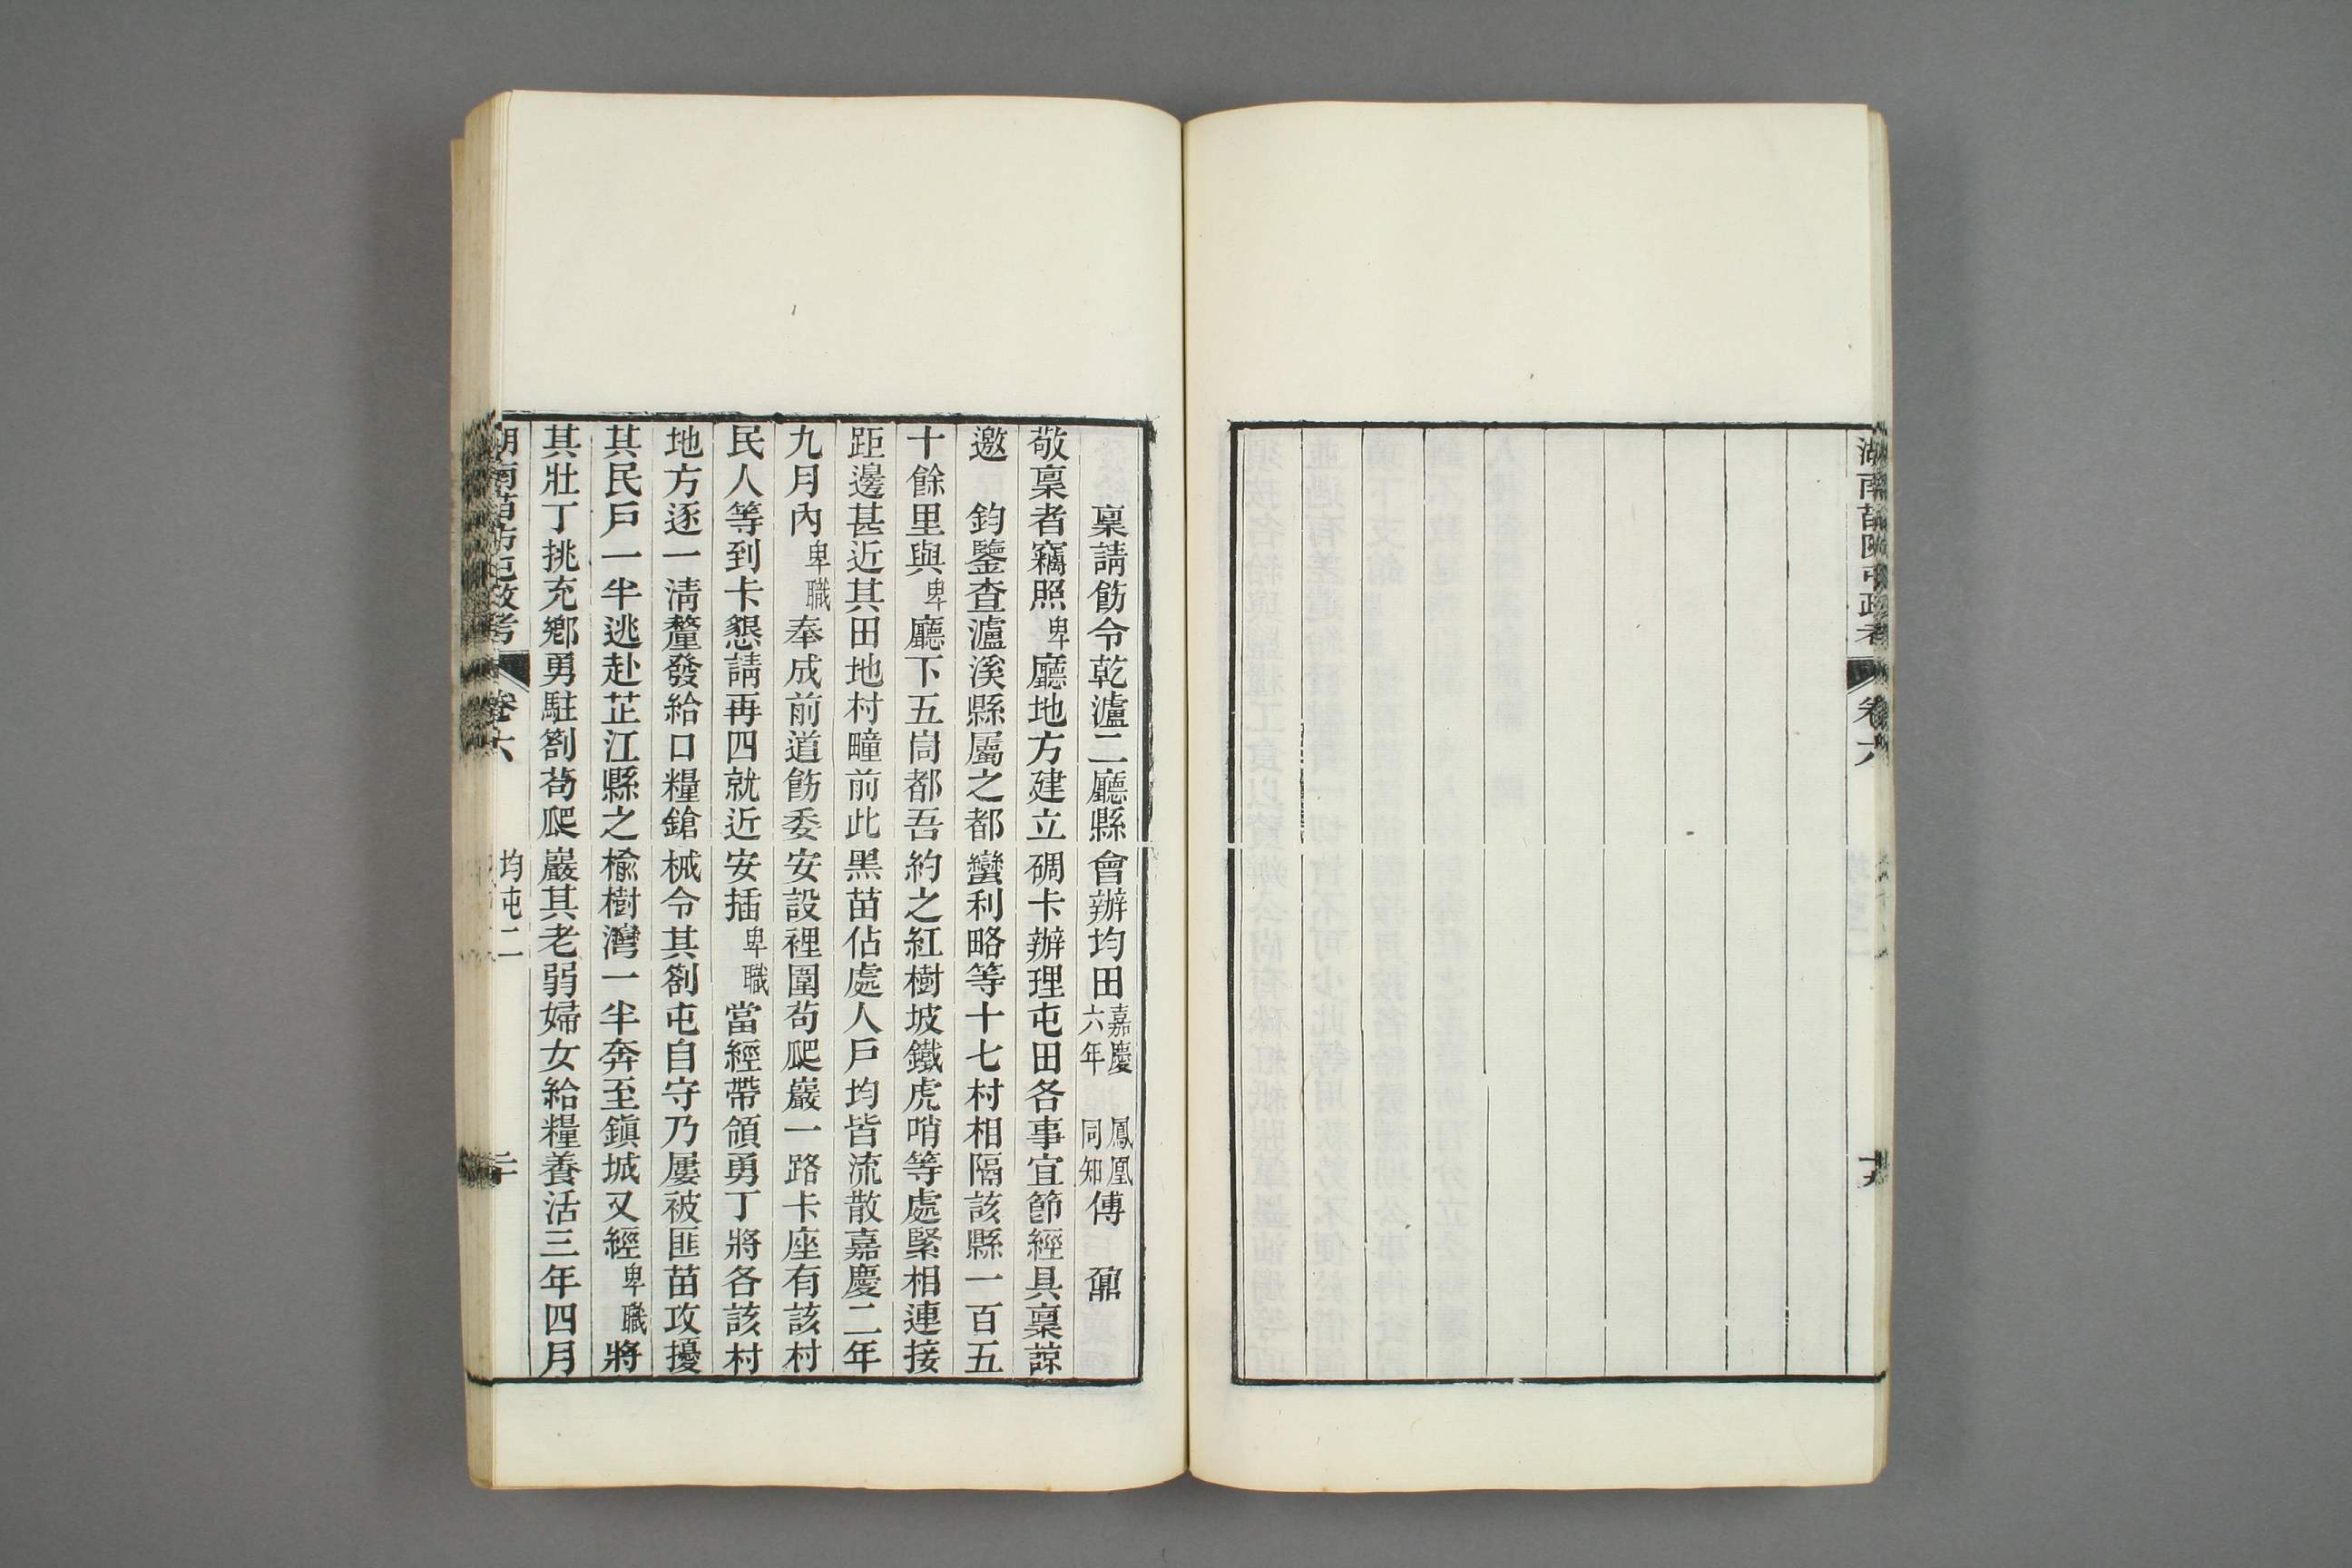 湖南苗防屯政考 卷六 十九
稟請飭令乾瀘二廳縣會辦均田嘉慶六年 鳳凰同知傅 鼐
敬稟者竊照卑廳地方建立碉卡辦理屯田各事宜節經具稟諒
邀 鈞鑒查瀘溪縣屬之都蠻利略等十七村相隔該縣一百五
十餘里與卑廳下五峝都吾約之紅樹坡鐵虎哨等處緊相連接
距邊甚近其田地村疃前此黑苗佔處人戶均皆流散嘉慶二年
九月內卑職奉成前道飭委安設裡圍茍爬巖一路卡座有該村
民人等到卡懇請再四就近安插卑職當經帶領勇丁將各該村
地方逐一淸釐發給口糧鎗械令其劄屯自守乃屢被匪苗攻擾
其民戶一半逃赴芷江縣之楡樹灣一半奔至鎭城又經卑職將
其壯丁挑充鄕勇駐劄茍爬巖其老弱婦女給糧養活三年四月
湖南苗防屯政考 卷六 均屯二 二十